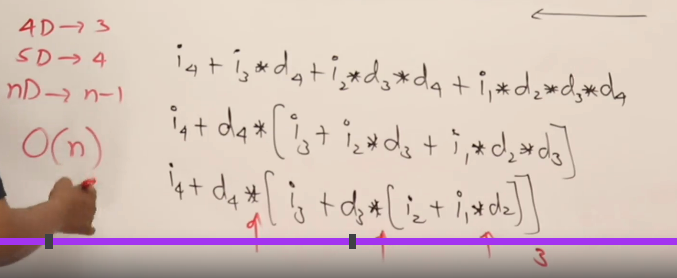 4D→3
5D→4
nD→n-1
O(n)
i₄+i₃*d₄+i₂*d₃*d₄+i₁*d₂*d₃*d₄
i₄+d₄*[i₃+i₂*d₃+i₁*d₂*d₃]
i₄+d₄*[i₃+d₃*[i₂+i₁*d₂]]
3